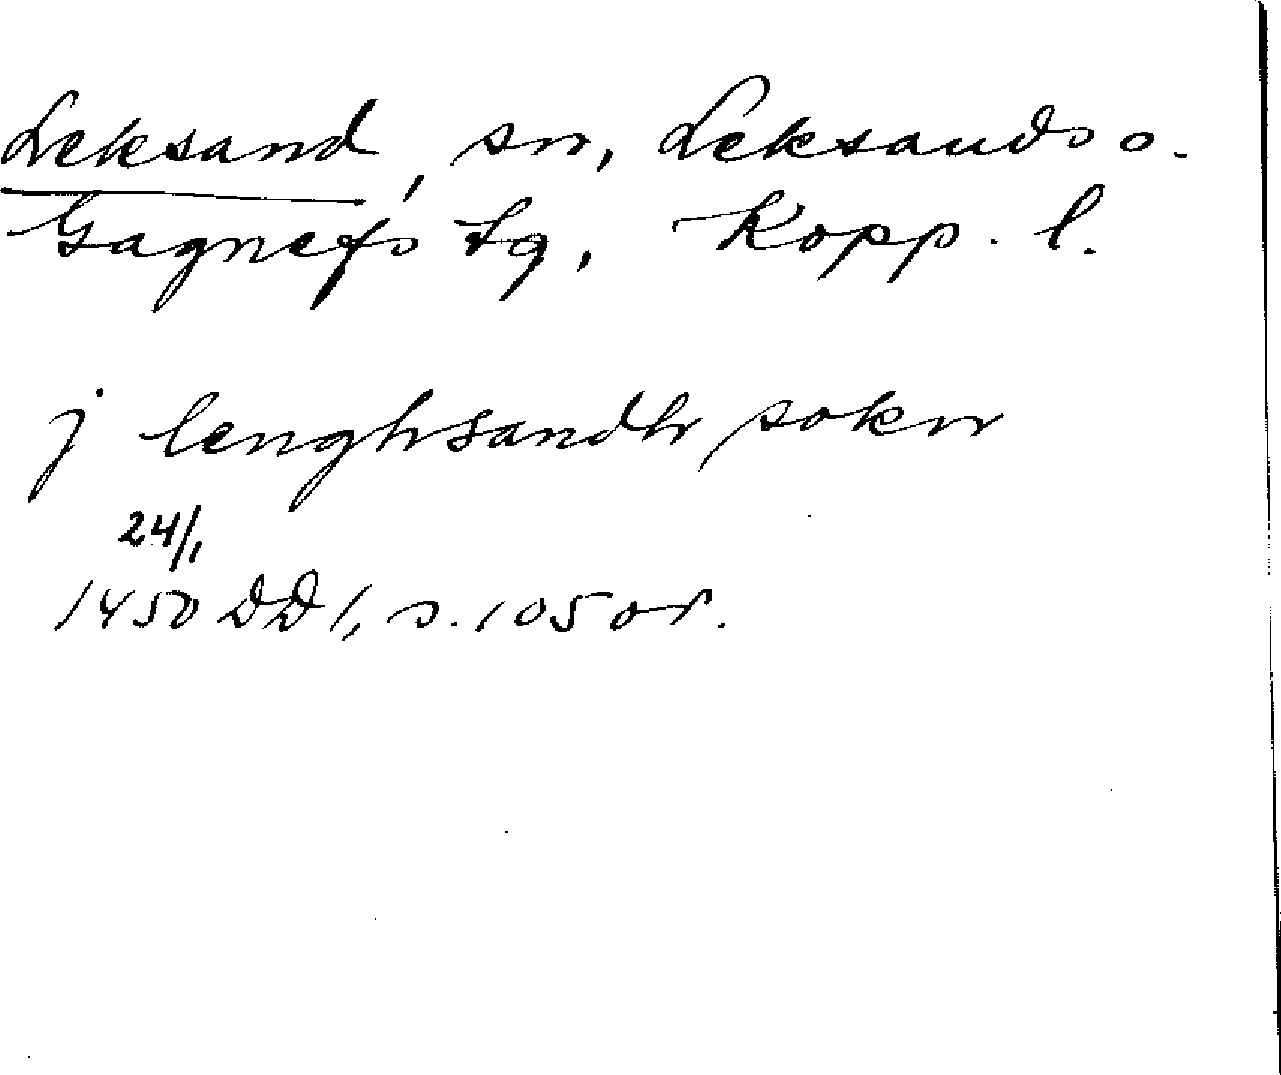 Leksand, sn, Leksands o.
Gagnefs tg, Kopp. l.
j lenghsandh sokn
24/1
1450 DD 1, s. 105 or.